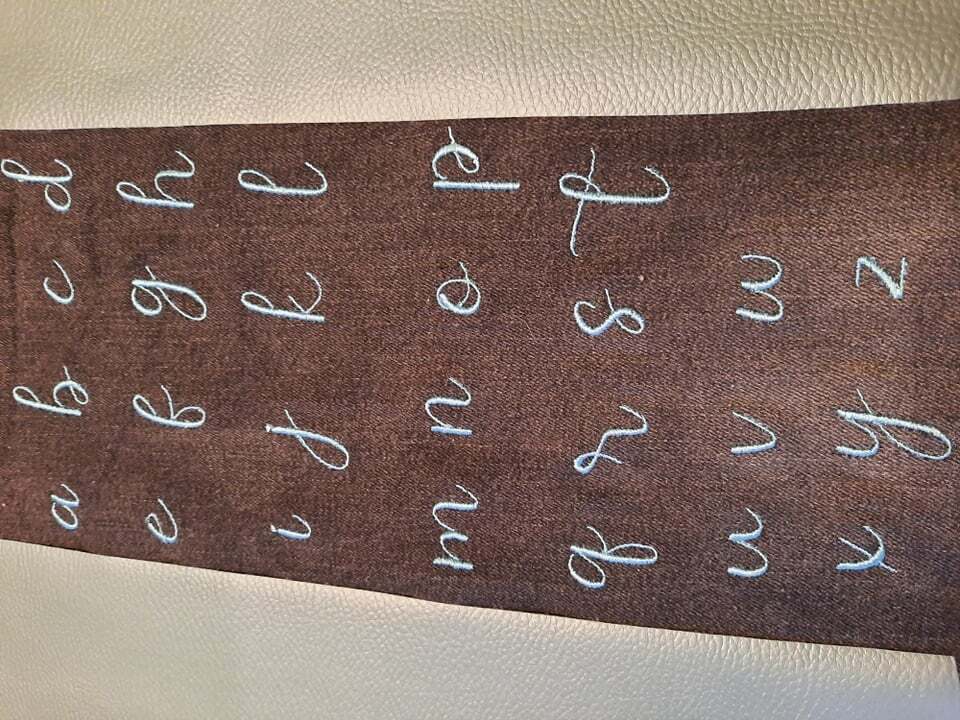 a b c d
e f g h
i j k l
m n o p
q r s t
u v w
x y z